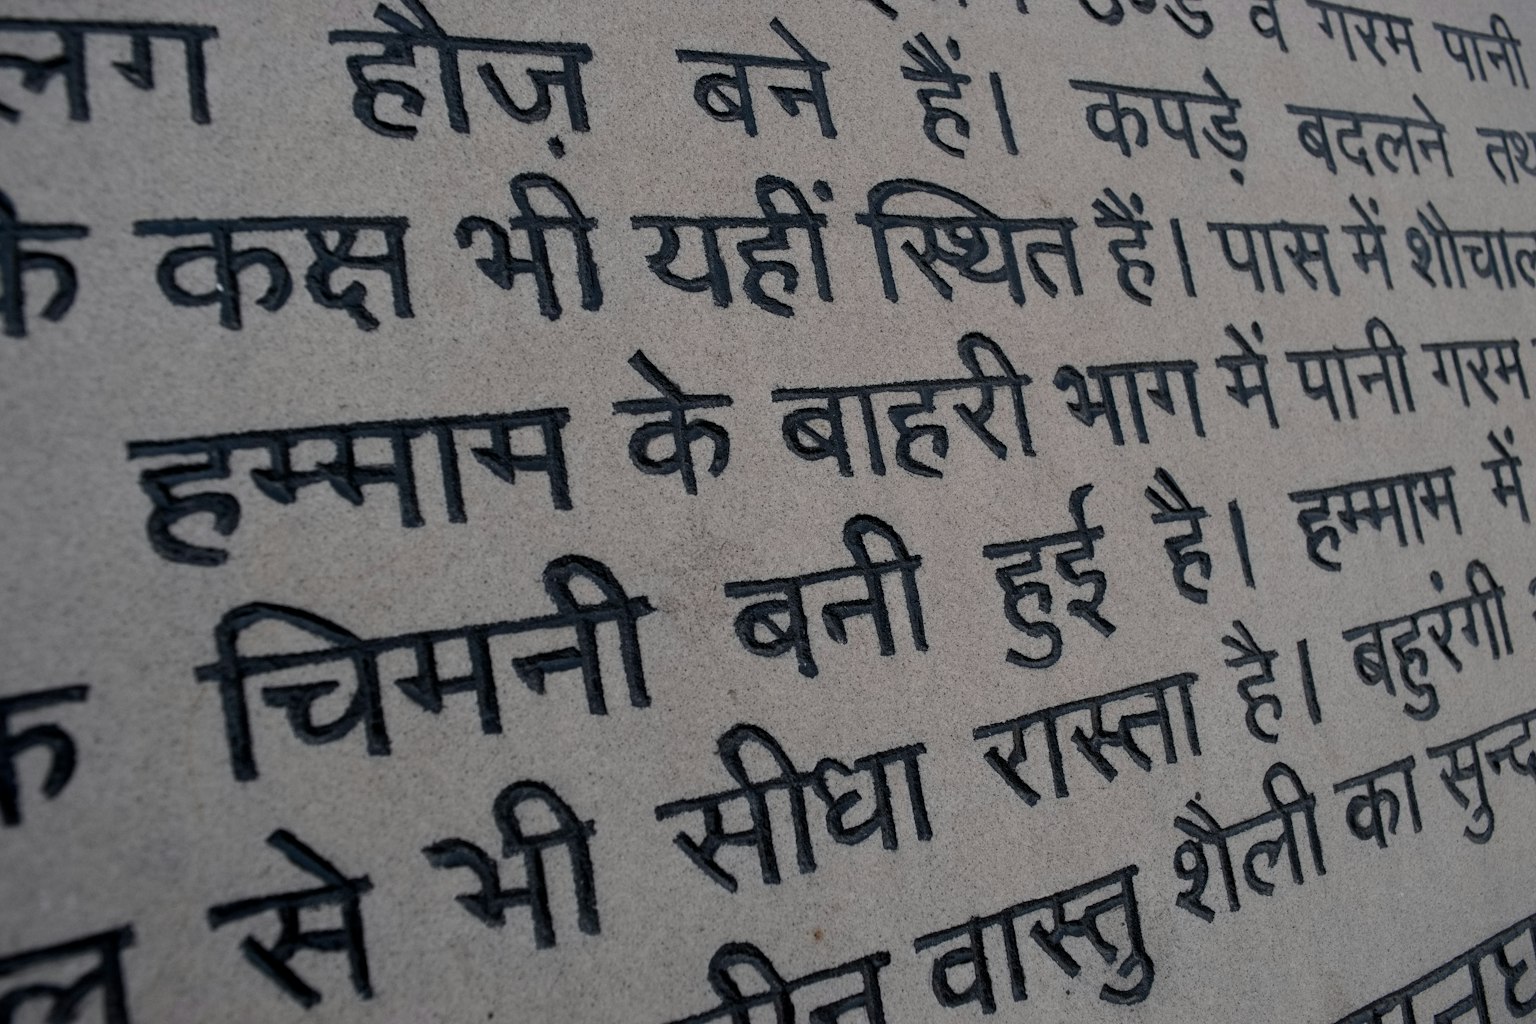 ठण्डे व गरम पानी
हौज़ बने हैं। कपड़े बदलने
के कक्ष भी यहीं स्थित हैं। पास में
हम्माम के बाहरी भाग में पानी गरम
चिमनी बनी हुई है। हम्माम में
से भी सीधा रास्ता है। बहुरंगी
वास्तु शैली का